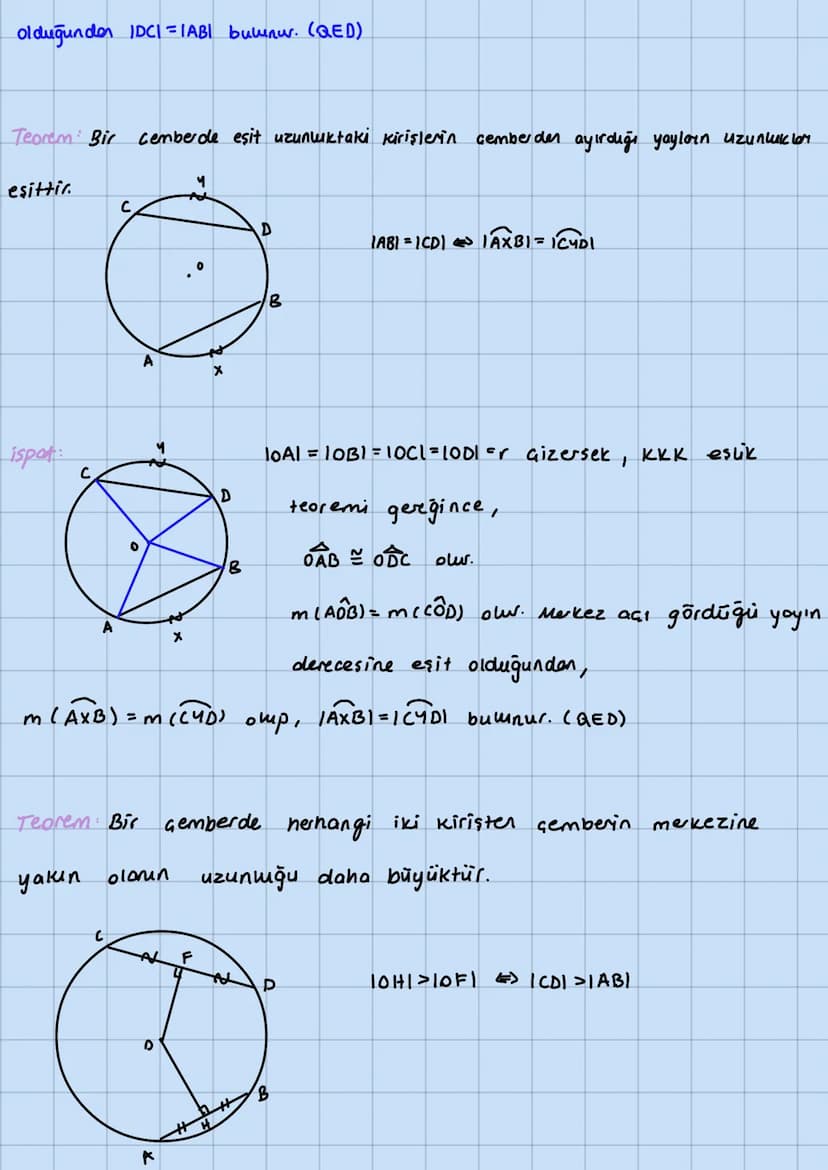 olduğundan |DC| = |AB| bulunur. (QED)
Teorem: Bir çemberde eşit uzunluktaki kirişlerin çemberden ayırdığı yayların uzunlukları
eşittir.
Y
C
D
O
B
A
X
|AB| = |CD| ⇔ |AXB| = |CYD|
ispat:
|OA| = |OB| = |OC| = |OD| = r çizersek, KKK eşlik
teoremi gereğince,
OAB ≅ ODC olur.
m(AÔB) = m(CÔD) olur. Merkez açı gördüğü yayın
derecesine eşit olduğundan,
Y
C
D
O
B
A
X
m(AXB) = m(CYD) olup, |AXB| = |CYD| bulunur. (QED)
Teorem: Bir çemberde herhangi iki kirişten çemberin merkezine
yakın olanın uzunluğu daha büyüktür.
C
F
D
O
B
H
A
|OH| > |OF| ⇔ |CD| > |AB|